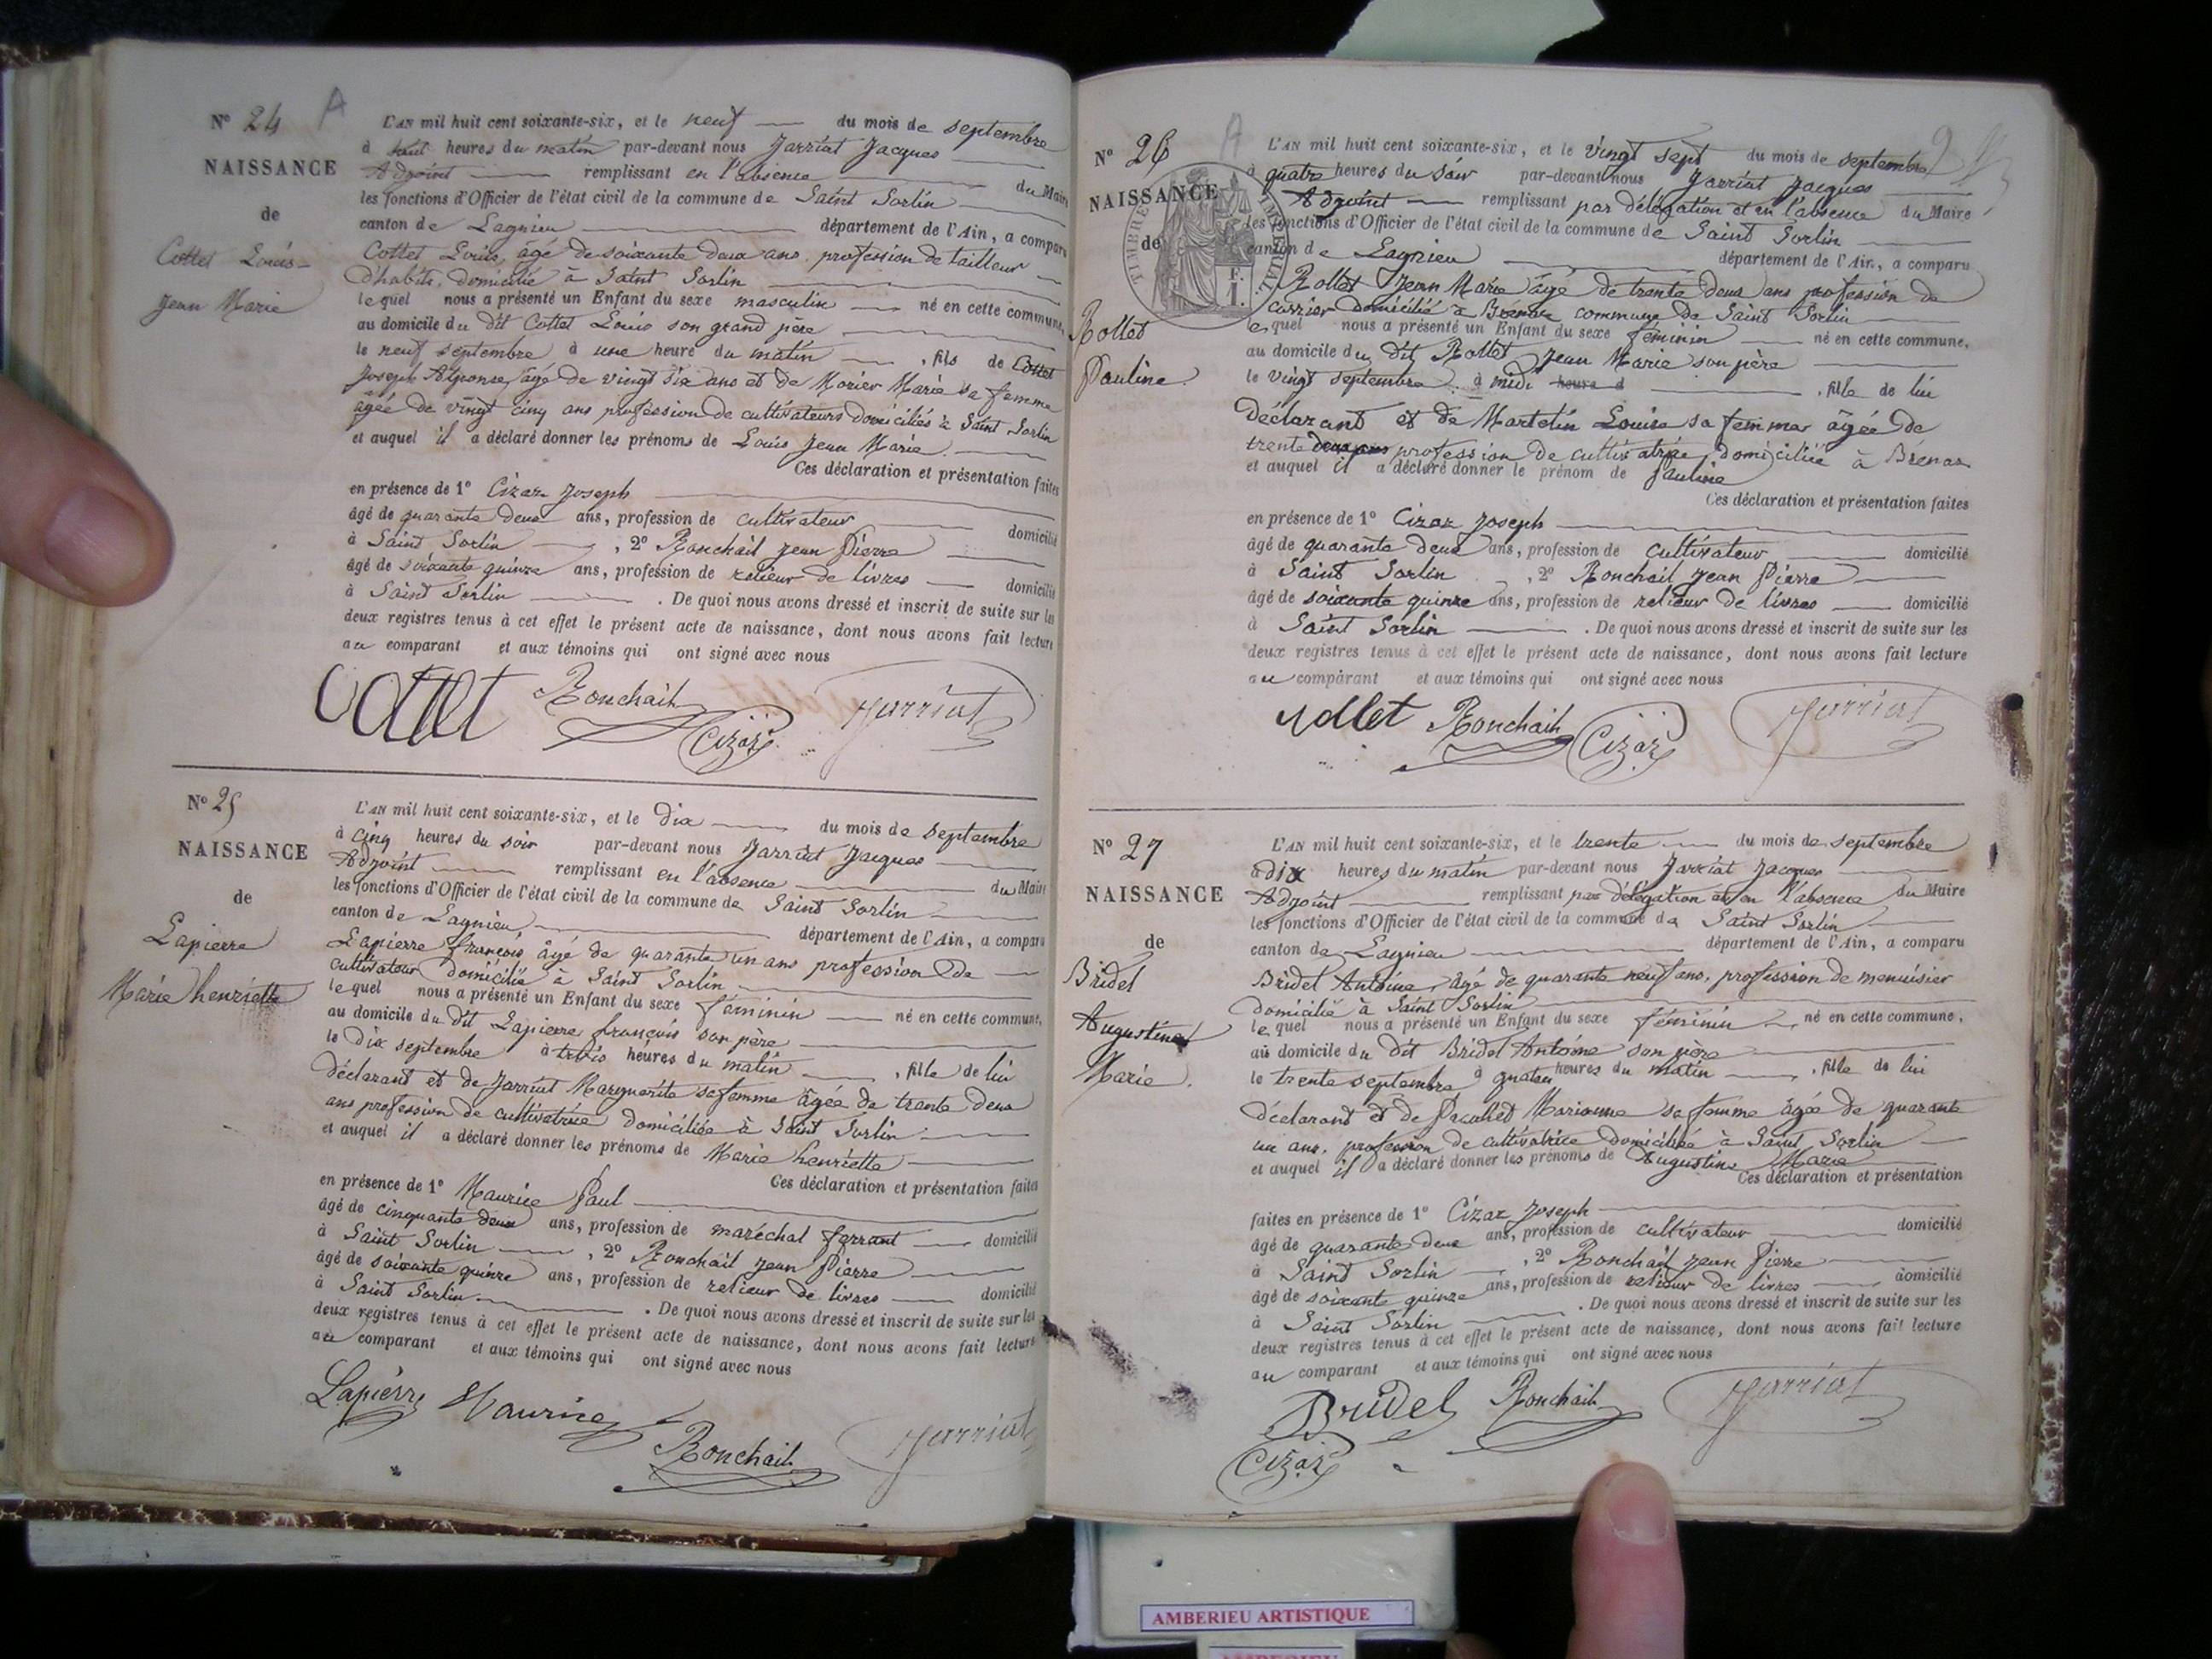 N° 24
NAISSANCE
de
Cottet Louis
Jean Marie
L'AN mil huit cent soixante-six, et le neuf du mois de septembre
à huit heures du matin par-devant nous Jarriat Jacques
Adjoint remplissant en l'absence du Maire
les fonctions d'Officier de l'état civil de la commune de Saint Sorlin
canton de Lagnieu département de l'Ain, a comparu
Cottet Louis, âgé de soixante deux ans profession de tailleur
d'habits, domicilié à Saint Sorlin
lequel nous a présenté un Enfant du sexe masculin né en cette commune,
au domicile du dit Cottet Louis son grand père
le neuf septembre à une heure du matin , fils de Cottet
Joseph Alponse, âgé de vingt six ans et de Morier Marie sa femme
âgée de vingt cinq ans profession de cultivateurs domiciliés à Saint Sorlin
et auquel il a déclaré donner les prénoms de Louis Jean Marie.
Ces déclaration et présentation faites
en présence de 1° Cizar Joseph
âgé de quarante deux ans, profession de cultivateur domicilié
à Saint Sorlin , 2° Ronchail Jean Pierre
âgé de soixante quinze ans, profession de relieur de livres domicilié
à Saint Sorlin . De quoi nous avons dressé et inscrit de suite sur les
deux registres tenus à cet effet le présent acte de naissance, dont nous avons fait lecture
au comparant et aux témoins qui ont signé avec nous
Cottet Ronchail Cizar Jarriat
N° 25
NAISSANCE
de
Lapierre
Marie henriette
L'AN mil huit cent soixante-six, et le dix du mois de septembre
à cinq heures du soir par-devant nous Jarriat Jacques
Adjoint remplissant en l'absence du Maire
les fonctions d'Officier de l'état civil de la commune de Saint Sorlin
canton de Lagnieu département de l'Ain, a comparu
Lapierre françois âgé de quarante un ans profession de
cultivateur domicilié à Saint Sorlin
lequel nous a présenté un Enfant du sexe féminin né en cette commune,
au domicile du dit Lapierre françois son père
le dix septembre à trois heures du matin , fille de lui
déclarant et de Jarriat Marguerite sa femme âgée de trente deux
ans profession de cultivatrice domiciliée à Saint Sorlin
et auquel il a déclaré donner les prénoms de Marie henriette
Ces déclaration et présentation faites
en présence de 1° Maurice Paul
âgé de cinquante deux ans, profession de maréchal ferrant domicilié
à Saint Sorlin , 2° Ronchail Jean Pierre
âgé de soixante quinze ans, profession de relieur de livres domicilié
à Saint Sorlin . De quoi nous avons dressé et inscrit de suite sur les
deux registres tenus à cet effet le présent acte de naissance, dont nous avons fait lecture
au comparant et aux témoins qui ont signé avec nous
Lapierre Maurice Ronchail Jarriat
N° 26
NAISSANCE
de
Rollet
Pauline.
L'AN mil huit cent soixante-six, et le vingt sept du mois de septembre
à quatre heures du soir par-devant nous Jarriat Jacques
Adjoint remplissant par délégation et en l'absence du Maire
les fonctions d'Officier de l'état civil de la commune de Saint Sorlin
canton de Lagnieu département de l'Ain, a comparu
Rollet Jean Marie âgé de trente deux ans profession de
carrier domicilié à Brénaz commune de Saint Sorlin
lequel nous a présenté un Enfant du sexe féminin né en cette commune,
au domicile du dit Rollet Jean Marie son père
le vingt septembre à midi heure d , fille de lui
déclarant et de Martelin Louise sa femme âgée de
trente deux ans profession de cultivatrice domiciliée à Brénaz
et auquel il a déclaré donner le prénom de Pauline
Ces déclaration et présentation faites
en présence de 1° Cizar Joseph
âgé de quarante deux ans, profession de cultivateur domicilié
à Saint Sorlin , 2° Ronchail Jean Pierre
âgé de soixante quinze ans, profession de relieur de livres domicilié
à Saint Sorlin . De quoi nous avons dressé et inscrit de suite sur les
deux registres tenus à cet effet le présent acte de naissance, dont nous avons fait lecture
au comparant et aux témoins qui ont signé avec nous
Rollet Ronchail Cizar Jarriat
N° 27
NAISSANCE
de
Bridel
Augustine
Marie.
L'AN mil huit cent soixante-six, et le trente du mois de septembre
à dix heures du matin par-devant nous Jarriat Jacques
Adjoint remplissant par délégation et en l'absence du Maire
les fonctions d'Officier de l'état civil de la commune de Saint Sorlin
canton de Lagnieu département de l'Ain, a comparu
Bridel Antoine, âgé de quarante neuf ans, profession de menuisier
domicilié à Saint Sorlin
lequel nous a présenté un Enfant du sexe féminin né en cette commune,
au domicile du dit Bridel Antoine son père
le trente septembre à quatre heures du matin , fille de lui
déclarant et de Marianne sa femme âgée de quarante
un ans, profession de cultivatrice domiciliée à Saint Sorlin
et auquel il a déclaré donner les prénoms de Augustine Marie
Ces déclaration et présentation
faites en présence de 1° Cizar Joseph
âgé de quarante deux ans, profession de cultivateur domicilié
à Saint Sorlin , 2° Ronchail Jean Pierre
âgé de soixante quinze ans, profession de relieur de livres domicilié
à Saint Sorlin . De quoi nous avons dressé et inscrit de suite sur les
deux registres tenus à cet effet le présent acte de naissance, dont nous avons fait lecture
au comparant et aux témoins qui ont signé avec nous
Bridel Ronchail Jarriat
Cizar
AMBERIEU ARTISTIQUE